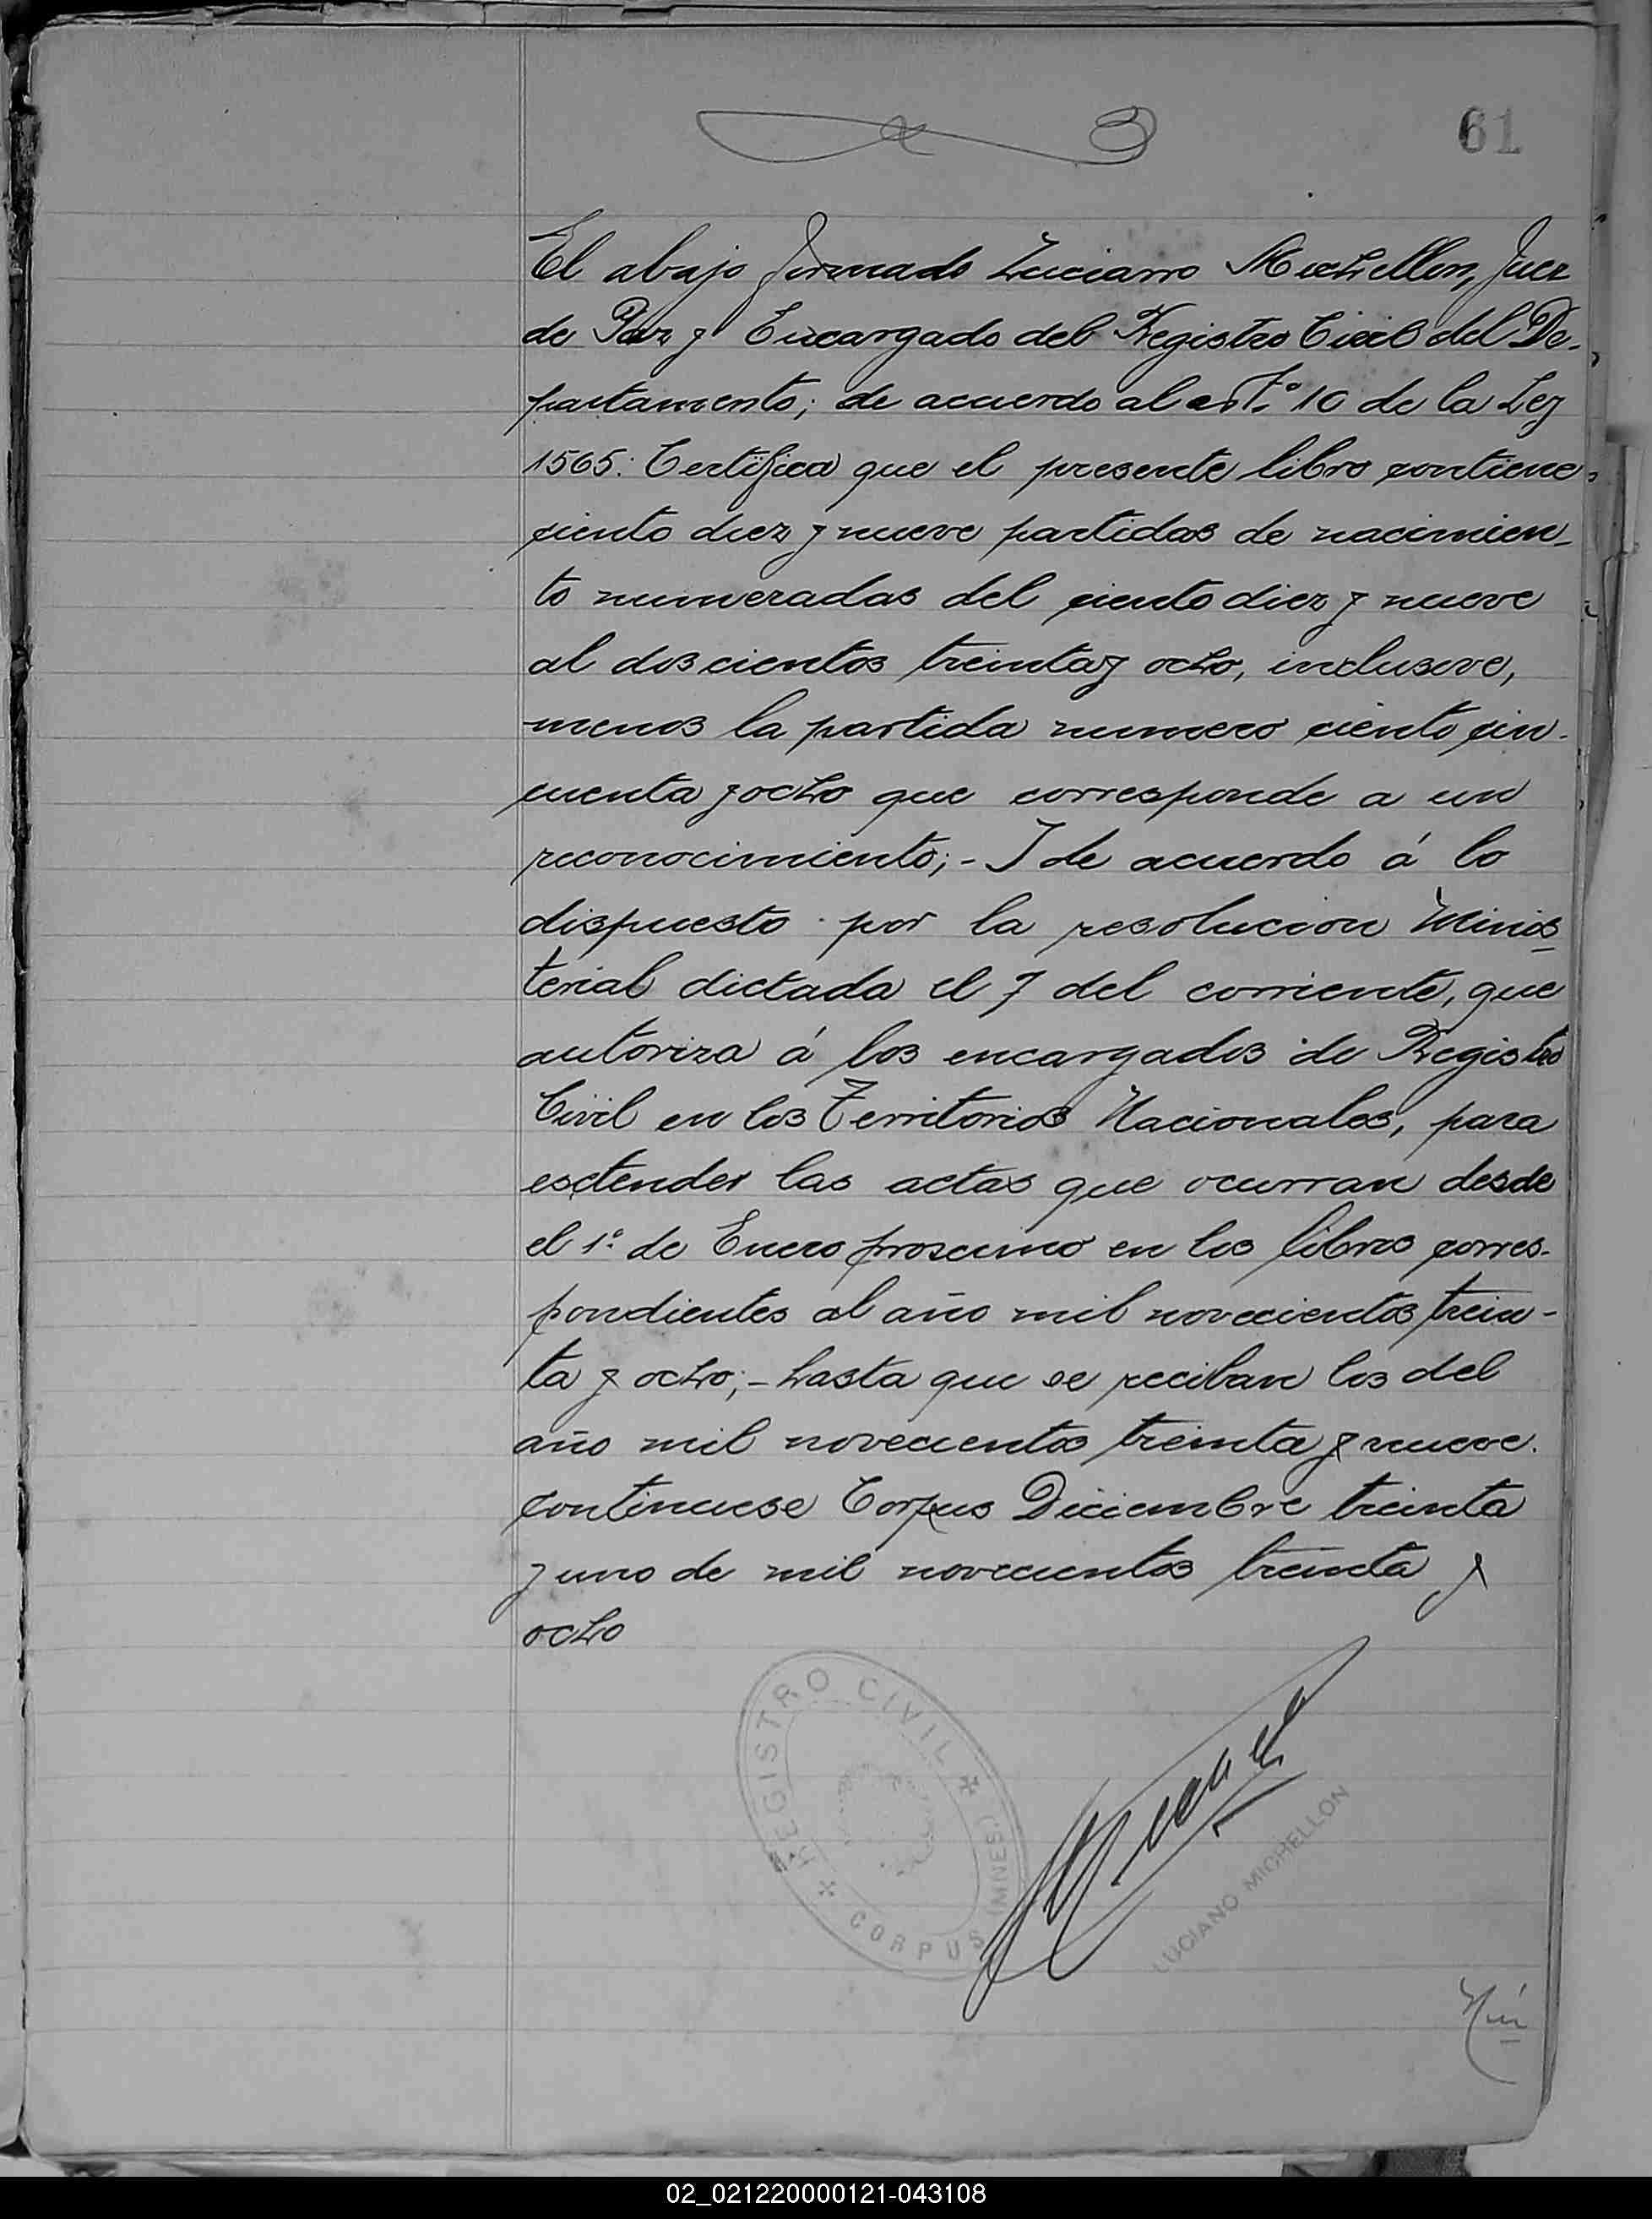 61
El abajo firmado Luciano Michellon, Juez
de Paz y Encargado del Registro Civil del De-
partamento; de acuerdo al artº 10 de la Ley
1565: Certifica que el presente libro contiene
ciento diez y nueve partidas de nacimien-
to numeradas del ciento diez y nueve
al doscientos treinta y ocho, inclusive,
menos la partida numero ciento cin-
cuenta y ocho que corresponde a un
reconocimiento; - I de acuerdo á lo
dispuesto por la resolucion Minis-
terial dictada el 7 del corriente, que
autoriza á los encargados de Registro
Civil en los Territorios Nacionales, para
esctender las actas que ocurran desde
el 1º de Enero procsimo en los libros corres-
pondientes al año mil novecientos trein-
ta y ocho; - hasta que se reciban los del
año mil novecientos treinta y nueve.
continuese Corpus Diciembre treinta
y uno de mil novecientos treinta y
ocho
REGISTRO CIVIL
CORPUS (MNES.)
LUCIANO MICHELLON
02_021220000121-043108